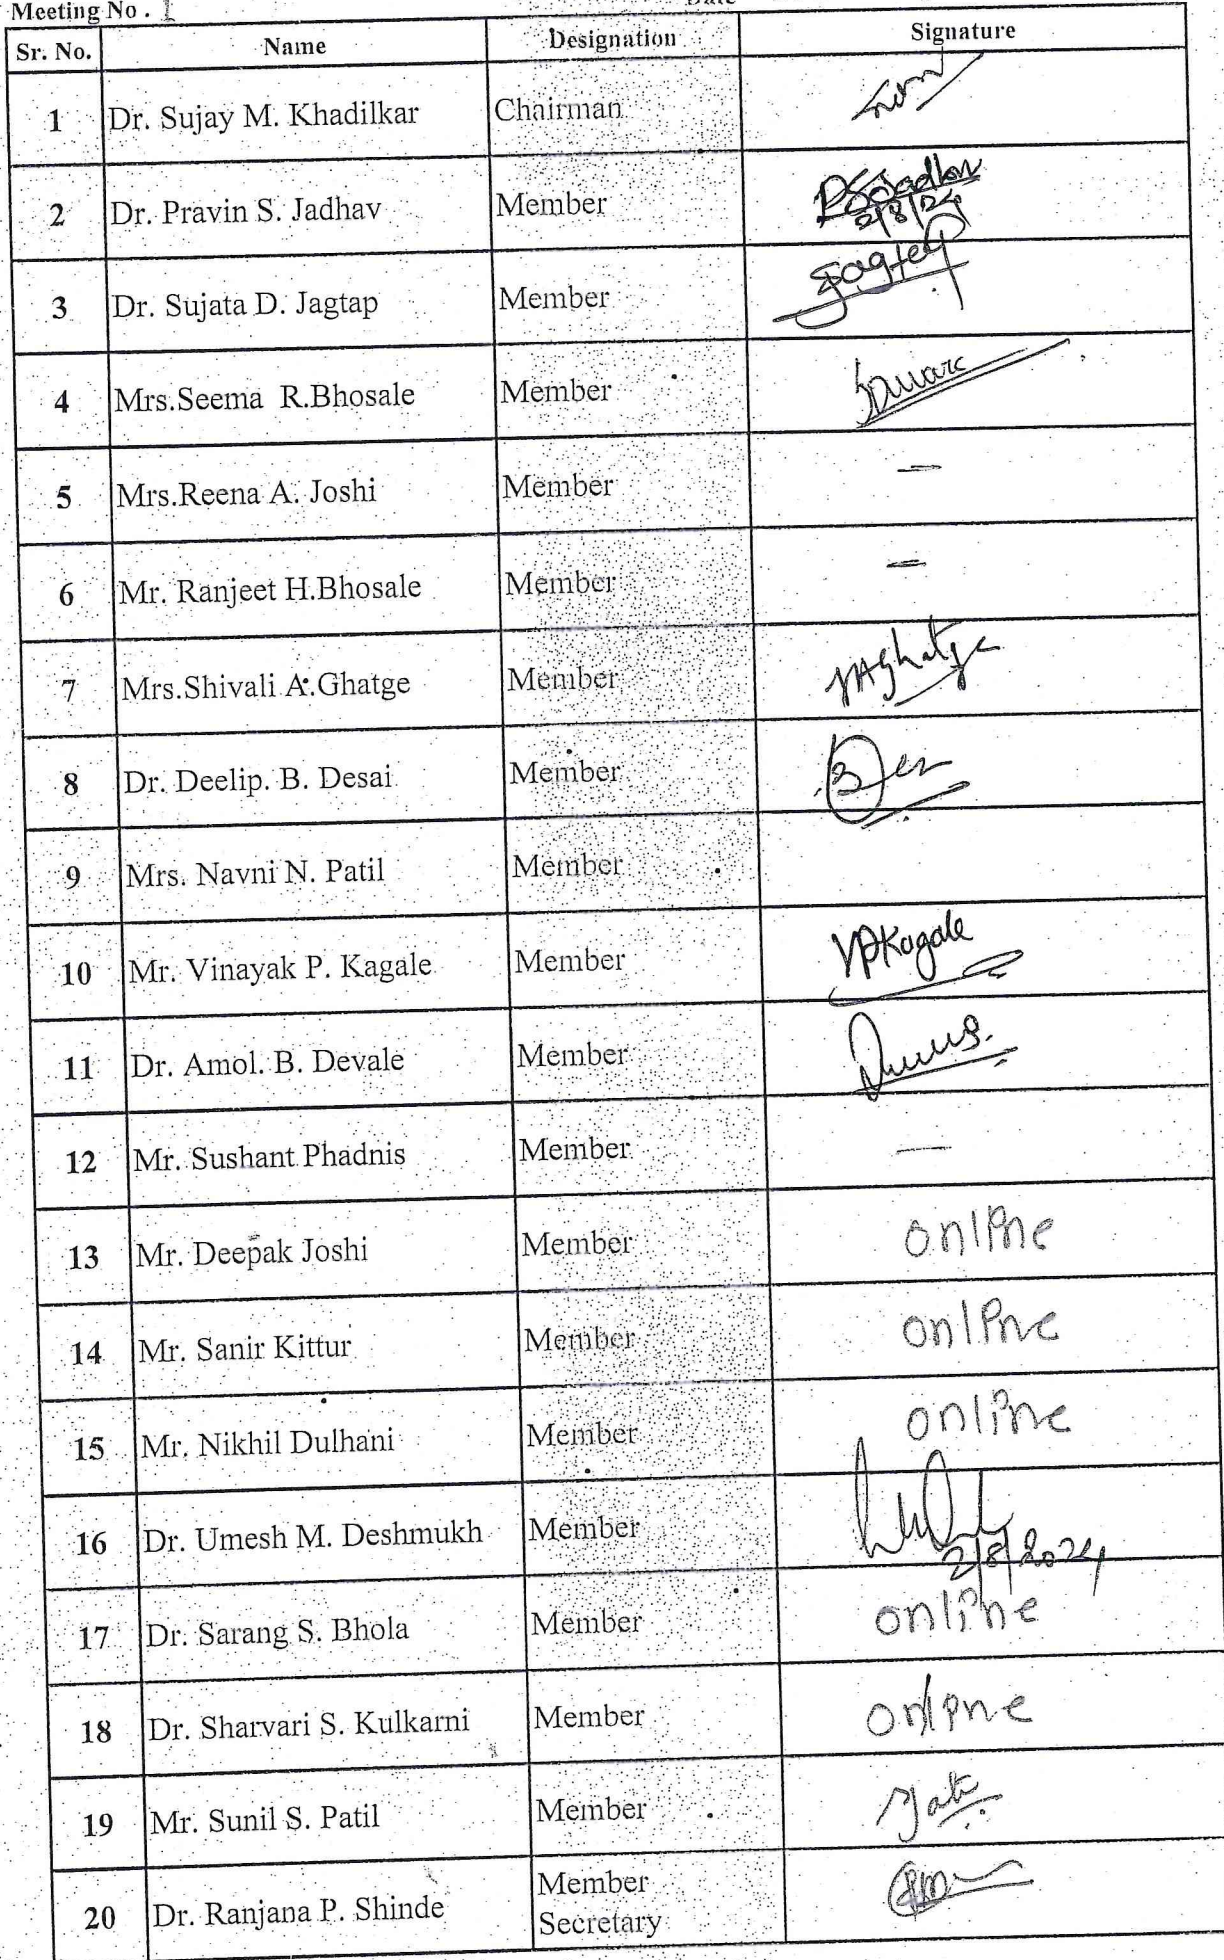 Meeting No . 1
Sr. No. Name Designation Signature
1 Dr. Sujay M. Khadilkar Chairman
2 Dr. Pravin S. Jadhav Member PSJadhav
2/8/24
3 Dr. Sujata D. Jagtap Member Jagtap
4 Mrs.Seema R.Bhosale Member
5 Mrs.Reena A. Joshi Member —
6 Mr. Ranjeet H.Bhosale Member —
7 Mrs.Shivali A.Ghatge Member
8 Dr. Deelip. B. Desai Member
9 Mrs. Navni N. Patil Member
10 Mr. Vinayak P. Kagale Member VPKagale
11 Dr. Amol. B. Devale Member
12 Mr. Sushant Phadnis Member —
13 Mr. Deepak Joshi Member online
14 Mr. Sanir Kittur Member online
15 Mr. Nikhil Dulhani Member online
16 Dr. Umesh M. Deshmukh Member
2/8/2024
17 Dr. Sarang S. Bhola Member online
18 Dr. Sharvari S. Kulkarni Member online
19 Mr. Sunil S. Patil Member
20 Dr. Ranjana P. Shinde Member
Secretary